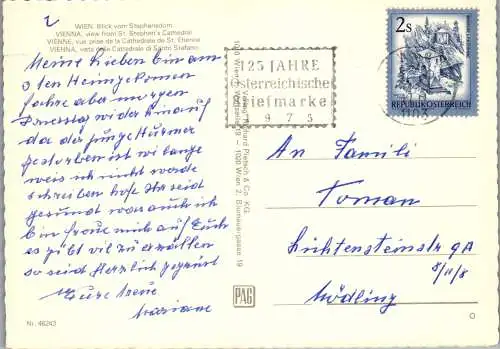 WIEN, Blick vom Stephansdom
VIENNA, view from St. Stephen's Cathedral
VIENNE, vue prise de la Cathedrale de St. Etienne
VIENNA, vista della Cattedrale di Santo Stefano
Meine Lieben bin am
9 ten Heimgekommen
fahre aber morgen
Dienstag wieder hinauf
da der junge
gestorben ist wie lange
weis ich nicht werde
schreiben hoffe Ihr seid
gesund was auch ich
bin freue mich auf Euch
es gibt viel zu erzällen
so seid Herzlich gegrüst
Eure treue
Mariane
Nr. 46243
Verlag Richard Pietsch & Co. KG.
1020 Wien 2, Blumauergasse 19
PAG
125 JAHRE
österreichische
Briefmarke
1975
2s
REPUBLIK ÖSTERREICH
1103
An Famili
Toman
Lichtensteinstr 9A
8/11/8
Mödling
O